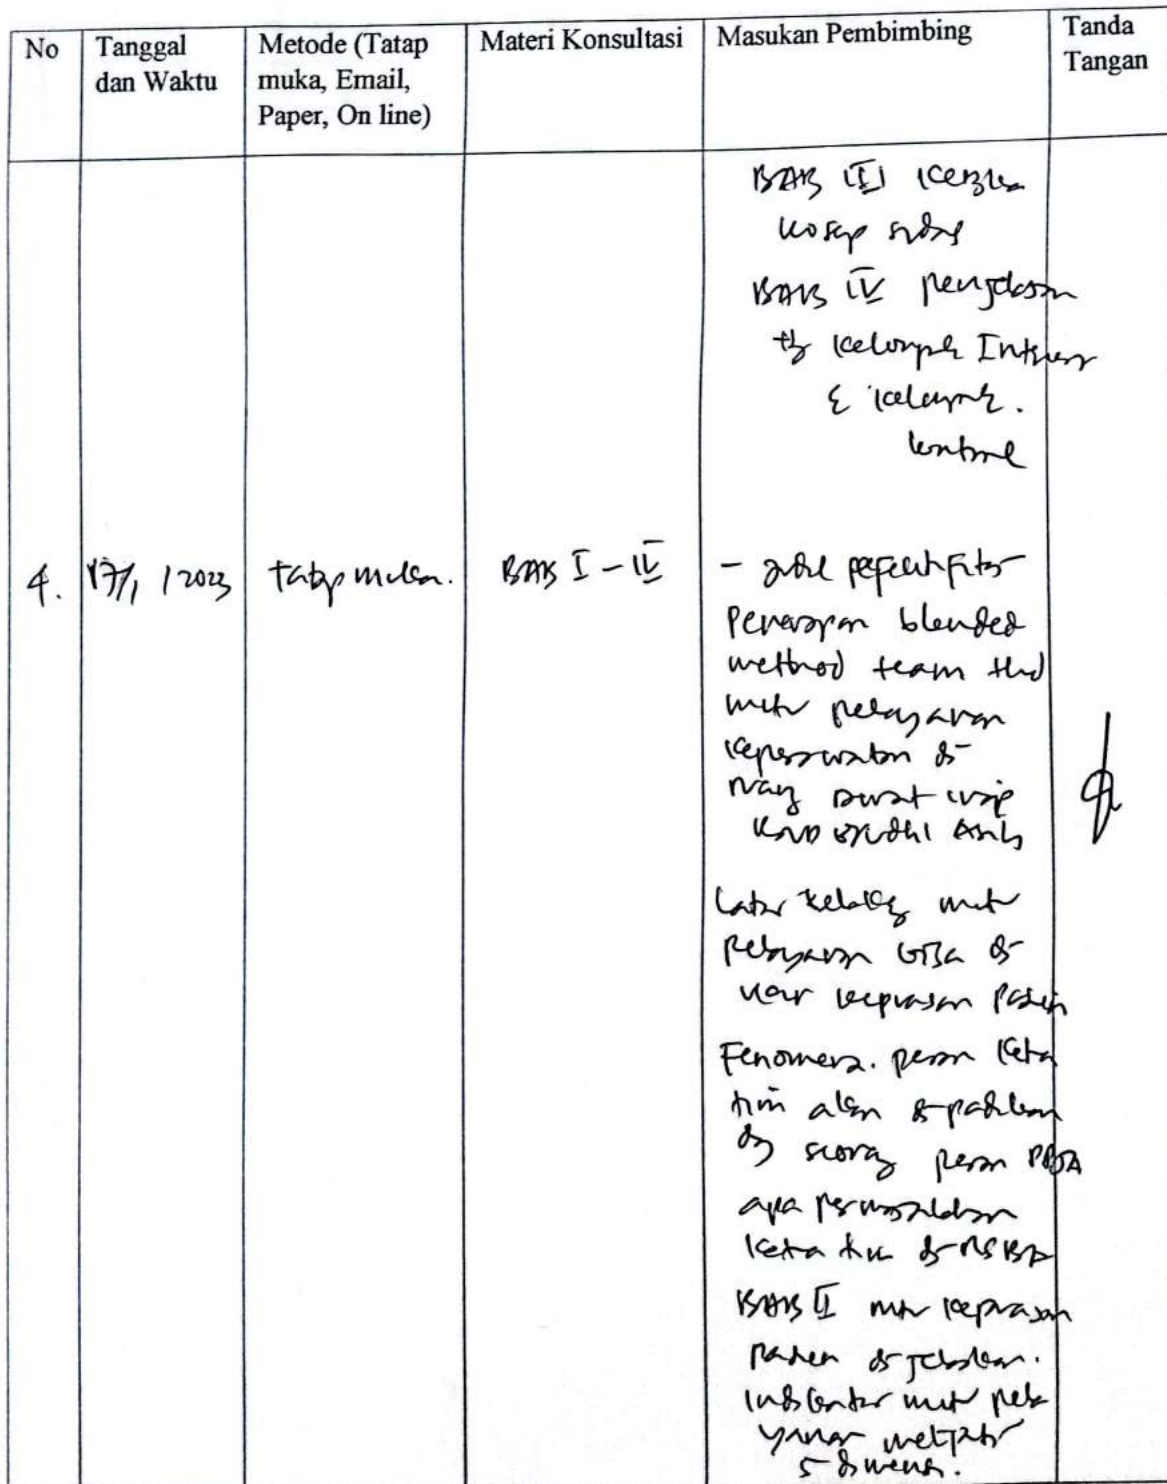 No
Tanggal
dan Waktu
Metode (Tatap
muka, Email,
Paper, On line)
Materi Konsultasi
Masukan Pembimbing
Tanda
Tangan
BAB III
BAB IV penjelasan
Kelompok
& kelompok.
kontrol
4.
17/1 / 2023
tatap muka.
BAB I - IV
-
Penerapan blended
method team thd
mutu pelayanan
keperawatan di
rawat inap
Latar belakang mutu
pelayanan bisa di
kepuasan pasien
Fenomena. peran ketua
tim akan dipadukan
dg seorang peran PPJA
apa permasalahan
ketua tim di RSBA
BAB II mutu kepuasan
pasien dijelaskan.
Indikator mutu pela
yanan meliputi
5 dimensi.